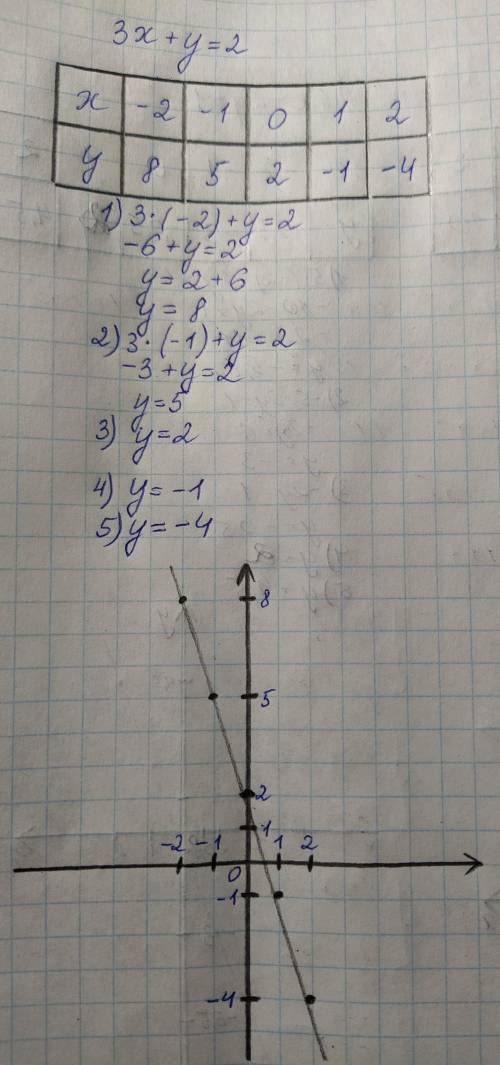 3x + y = 2
x -2 -1 0 1 2
y 8 5 2 -1 -4
1) 3·(-2)+y=2
-6+y=2
y=2+6
y=8
2) 3·(-1)+y=2
-3+y=2
y=5
3) y=2
4) y=-1
5) y=-4
8
5
2
1
-2 -1 1 2
0
-1
-4